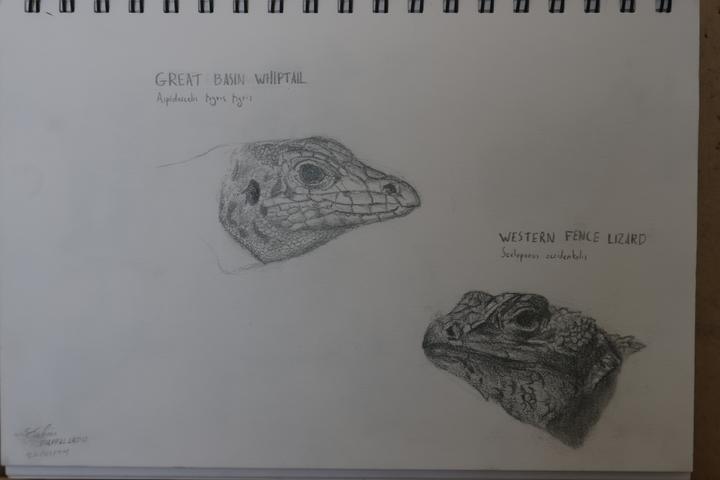 GREAT BASIN WHIPTAIL
Aspidoscelis tigris tigris
WESTERN FENCE LIZARD
Sceloporus occidentalis